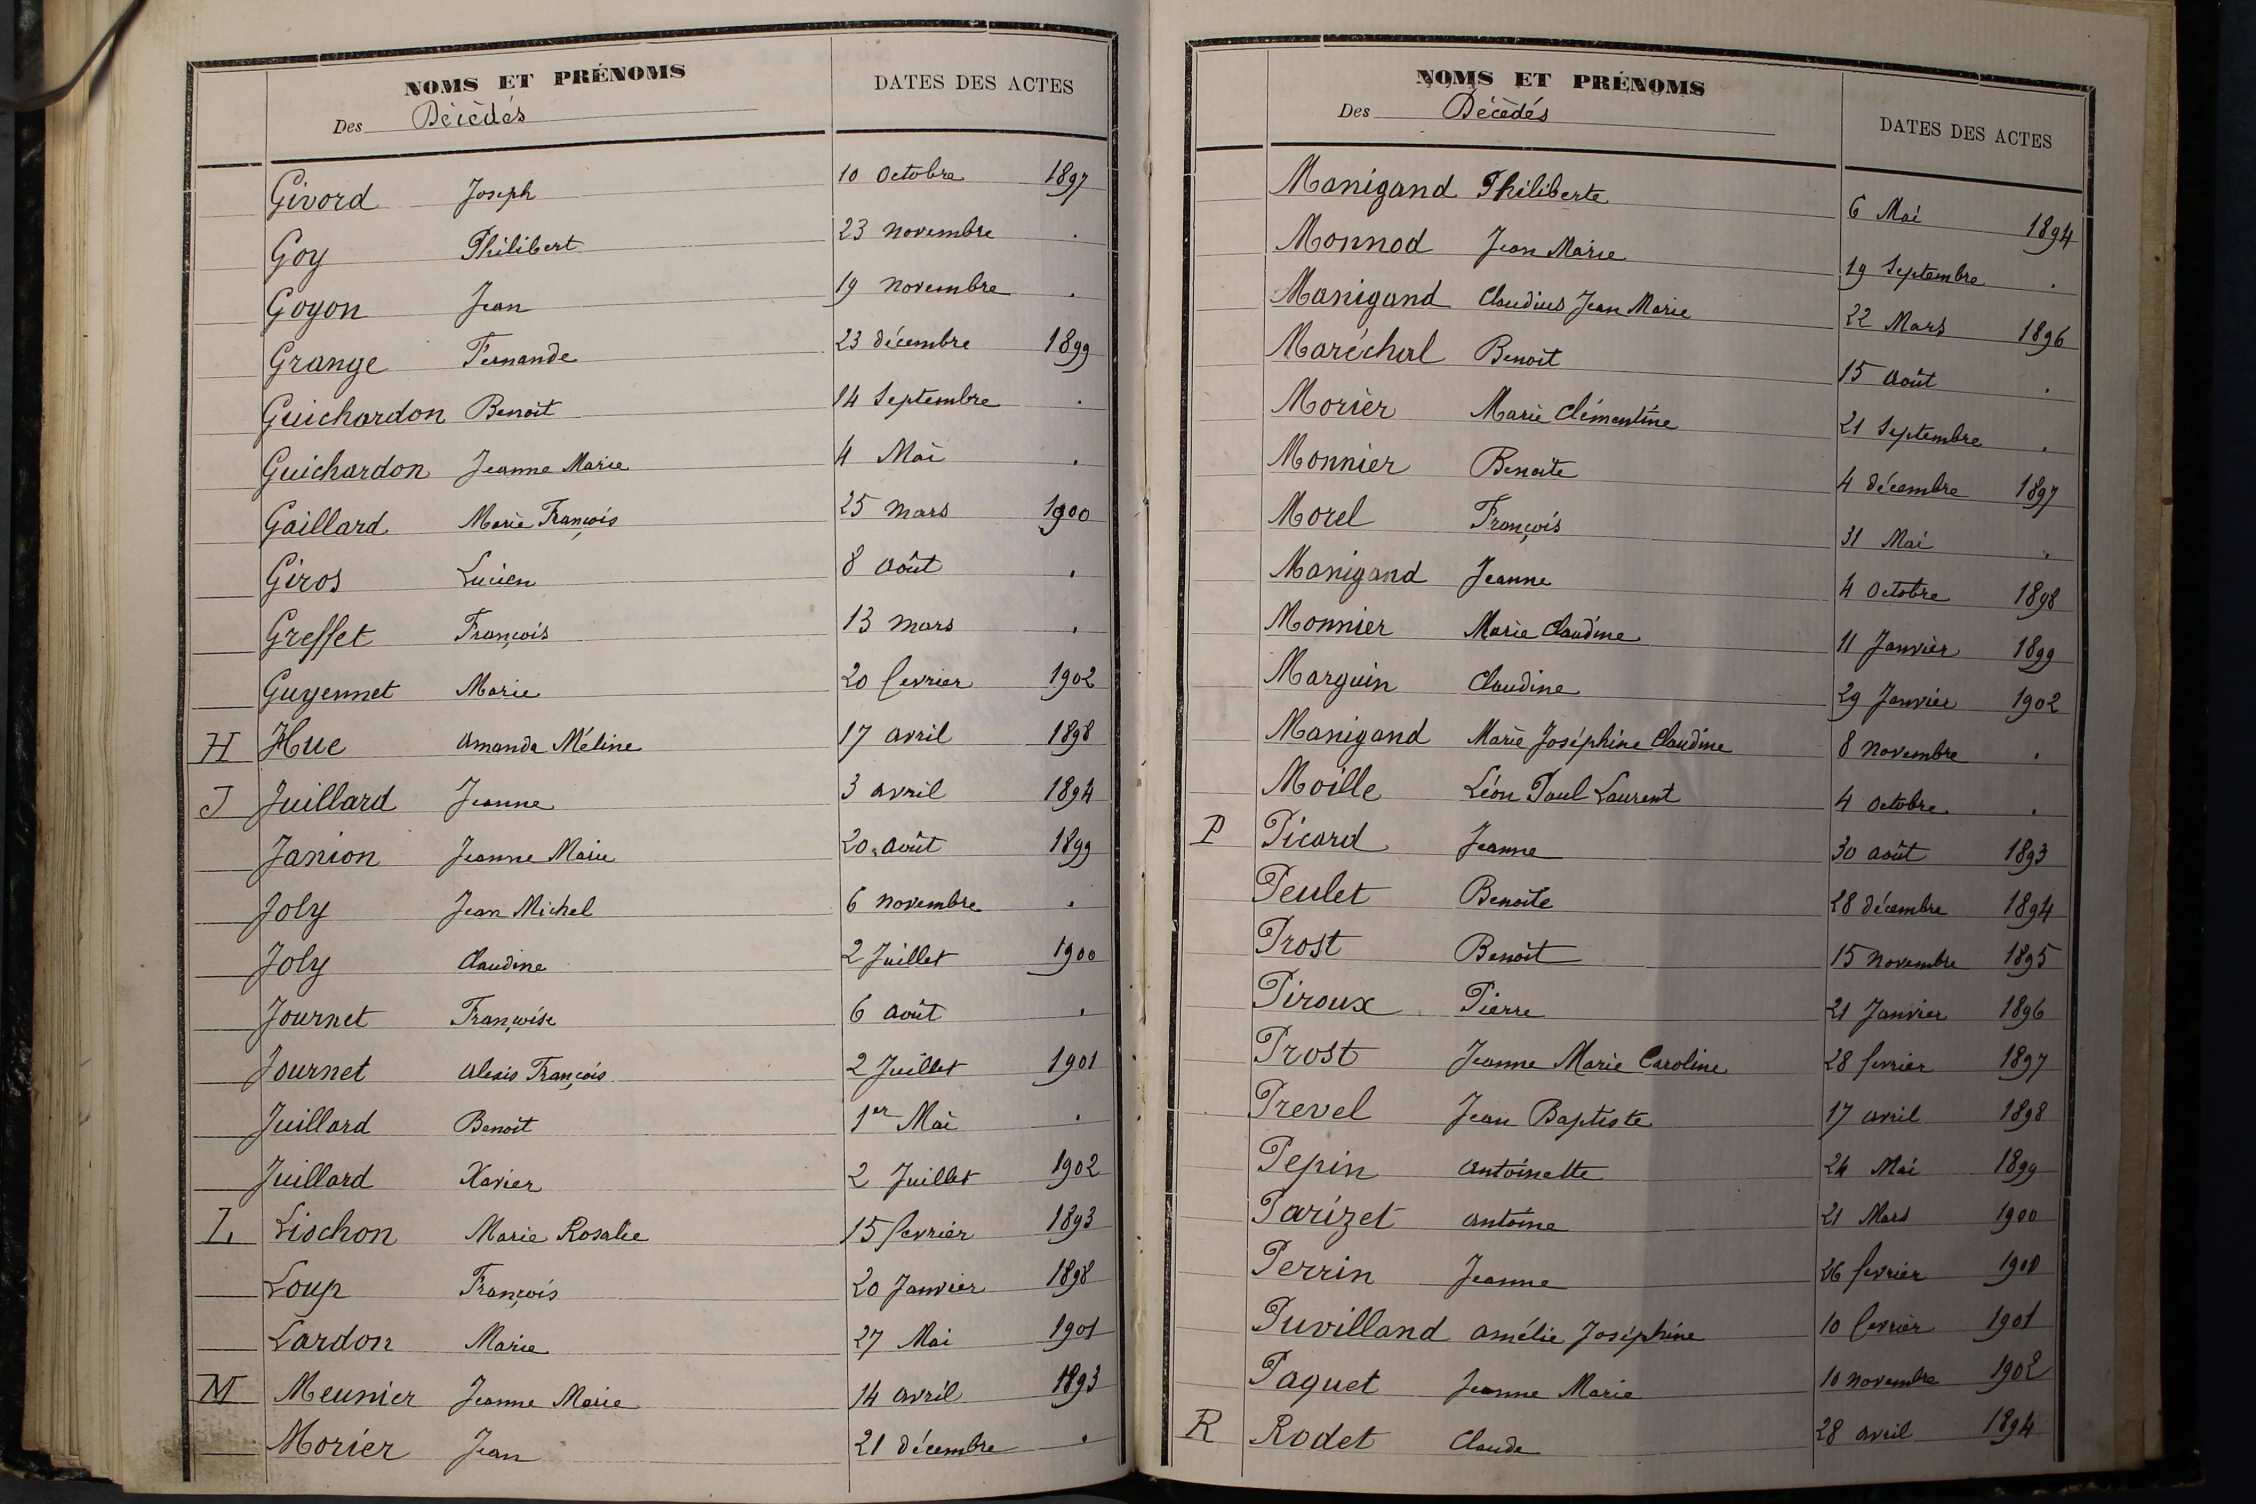 NOMS ET PRÉNOMS DATES DES ACTES
Des Décèdés
Givord Joseph 10 Octobre 1897
Goy Philibert 23 novembre .
Goyon Jean 19 novembre .
Grange Fernande 23 décembre 1899
Guichardon Benoit 14 Septembre .
Guichardon Jeanne Marie 4 Mai .
Gaillard Marie François 25 mars 1900
Giros Lucien 8 Août .
Greffet François 13 mars .
Guyennet Marie 20 fevrier 1902
H Hue Amanda Méline 17 avril 1898
J Juillard Jeanne 3 avril 1894
Janion Jeanne Marie 20 août 1899
Joly Jean Michel 6 novembre .
Joly Claudine 2 Juillet 1900
Journet Françoise 6 Août .
Journet Alexis François 2 Juillet 1901
Juillard Benoit 1er Mai .
Juillard Xavier 2 Juillet 1902
L Lischon Marie Rosalie 15 fevrier 1893
Loup François 20 Janvier 1898
Lardon Marie 27 Mai 1901
M Meunier Jeanne Marie 14 avril 1893
Morier Jean 21 décembre .
NOMS ET PRÉNOMS DATES DES ACTES
Des Décédés
Manigand Philiberte 6 Mai 1894
Monnod Jean Marie 19 Septembre .
Manigand Claudius Jean Marie 22 Mars 1896
Maréchal Benoit 15 Août .
Morier Marie Clémentine 21 Septembre .
Monnier Benoite 4 décembre 1897
Morel François 31 Mai .
Manigand Jeanne 4 Octobre 1898
Monnier Marie Claudine 11 Janvier 1899
Marguin Claudine 29 Janvier 1902
Manigand Marie Joséphine Claudine 8 novembre .
Moille Léon Paul Laurent 4 Octobre .
P Picard Jeanne 30 août 1893
Peulet Benoite 28 décembre 1894
Prost Benoit 15 novembre 1895
Piroux Pierre 21 Janvier 1896
Prost Jeanne Marie Caroline 28 fevrier 1897
Prevel Jean Baptiste 17 avril 1898
Pepin Antoinette 24 Mai 1899
Parizet Antoine 21 Mars 1900
Perrin Jeanne 26 fevrier
Puvilland Amélie Joséphine 10 fevrier 1901
Paquet Jeanne Marie 10 novembre 1902
R Rodet Claude 28 avril 1894